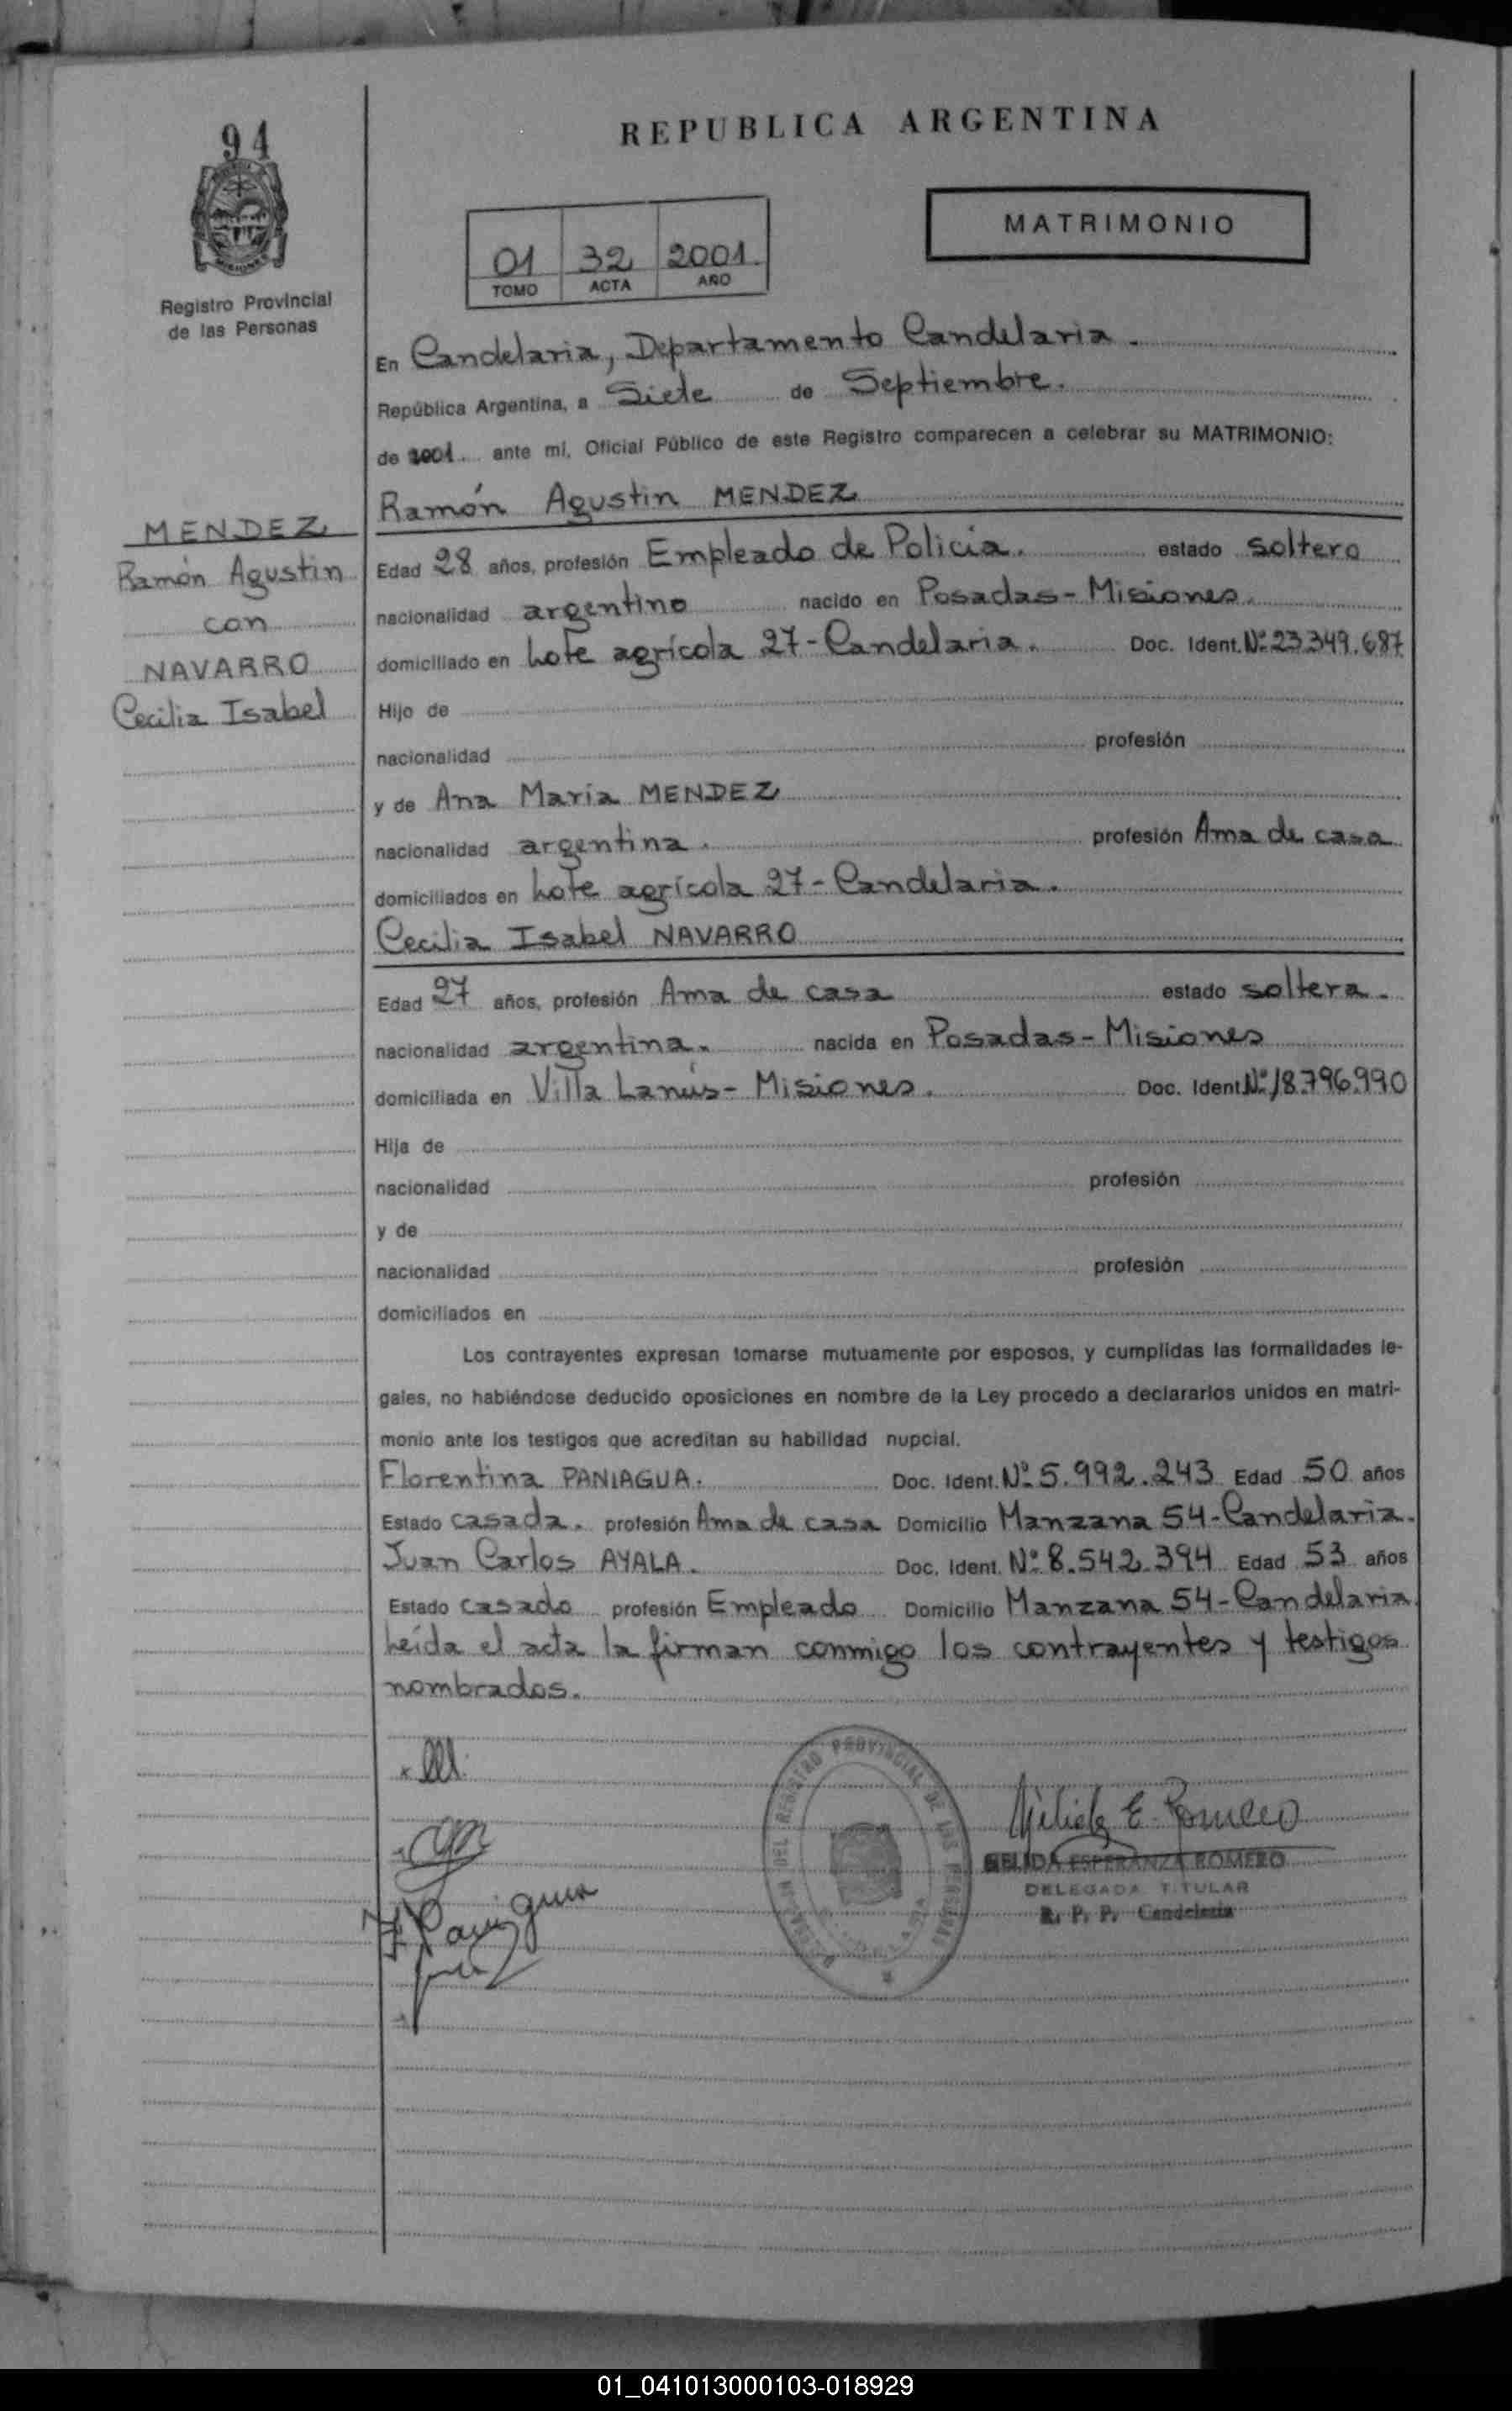 94
REPUBLICA ARGENTINA
MATRIMONIO
01 32 2001.
TOMO ACTA AÑO
Registro Provincial
de las Personas
En Candelaria, Departamento Candelaria.
República Argentina, a Siete de Septiembre.
de 2001 ante mi, Oficial Público de este Registro comparecen a celebrar su MATRIMONIO:
Ramón Agustin MENDEZ
MENDEZ
Ramón Agustin
con
NAVARRO
Cecilia Isabel
Edad 28 años, profesión Empleado de Policía. estado soltero
nacionalidad argentino nacido en Posadas-Misiones.
domiciliado en Lote agrícola 27-Candelaria. Doc. Ident. Nº 23.349.687
Hijo de
nacionalidad profesión
y de Ana María MENDEZ
nacionalidad argentina. profesión Ama de casa
domiciliados en Lote agrícola 27-Candelaria.
Cecilia Isabel NAVARRO
Edad 27 años, profesión Ama de casa estado soltera.
nacionalidad argentina. nacida en Posadas-Misiones
domiciliada en Villa Lanús-Misiones. Doc. Ident Nº 18.796.990
Hija de
nacionalidad profesión
y de
nacionalidad profesión
domiciliados en
Los contrayentes expresan tomarse mutuamente por esposos, y cumplidas las formalidades le-
gales, no habiéndose deducido oposiciones en nombre de la Ley procedo a declararlos unidos en matri-
monio ante los testigos que acreditan su habilidad nupcial.
Florentina PANIAGUA. Doc. Ident. Nº 5.992.243 Edad 50 años
Estado casada. profesión Ama de casa Domicilio Manzana 54-Candelaria.
Juan Carlos AYALA. Doc. Ident. Nº 8.542.394 Edad 53 años
Estado casado profesión Empleado Domicilio Manzana 54-Candelaria.
Leída el acta la firman conmigo los contrayentes y testigos
nombrados.
DEL REGISTRO PROVINCIAL DE LAS PERSONAS
E. Romero
ESPERANZA ROMERO
DELEGADA TITULAR
R. P. P. Candelaria
F Paniagua
01_041013000103-018929